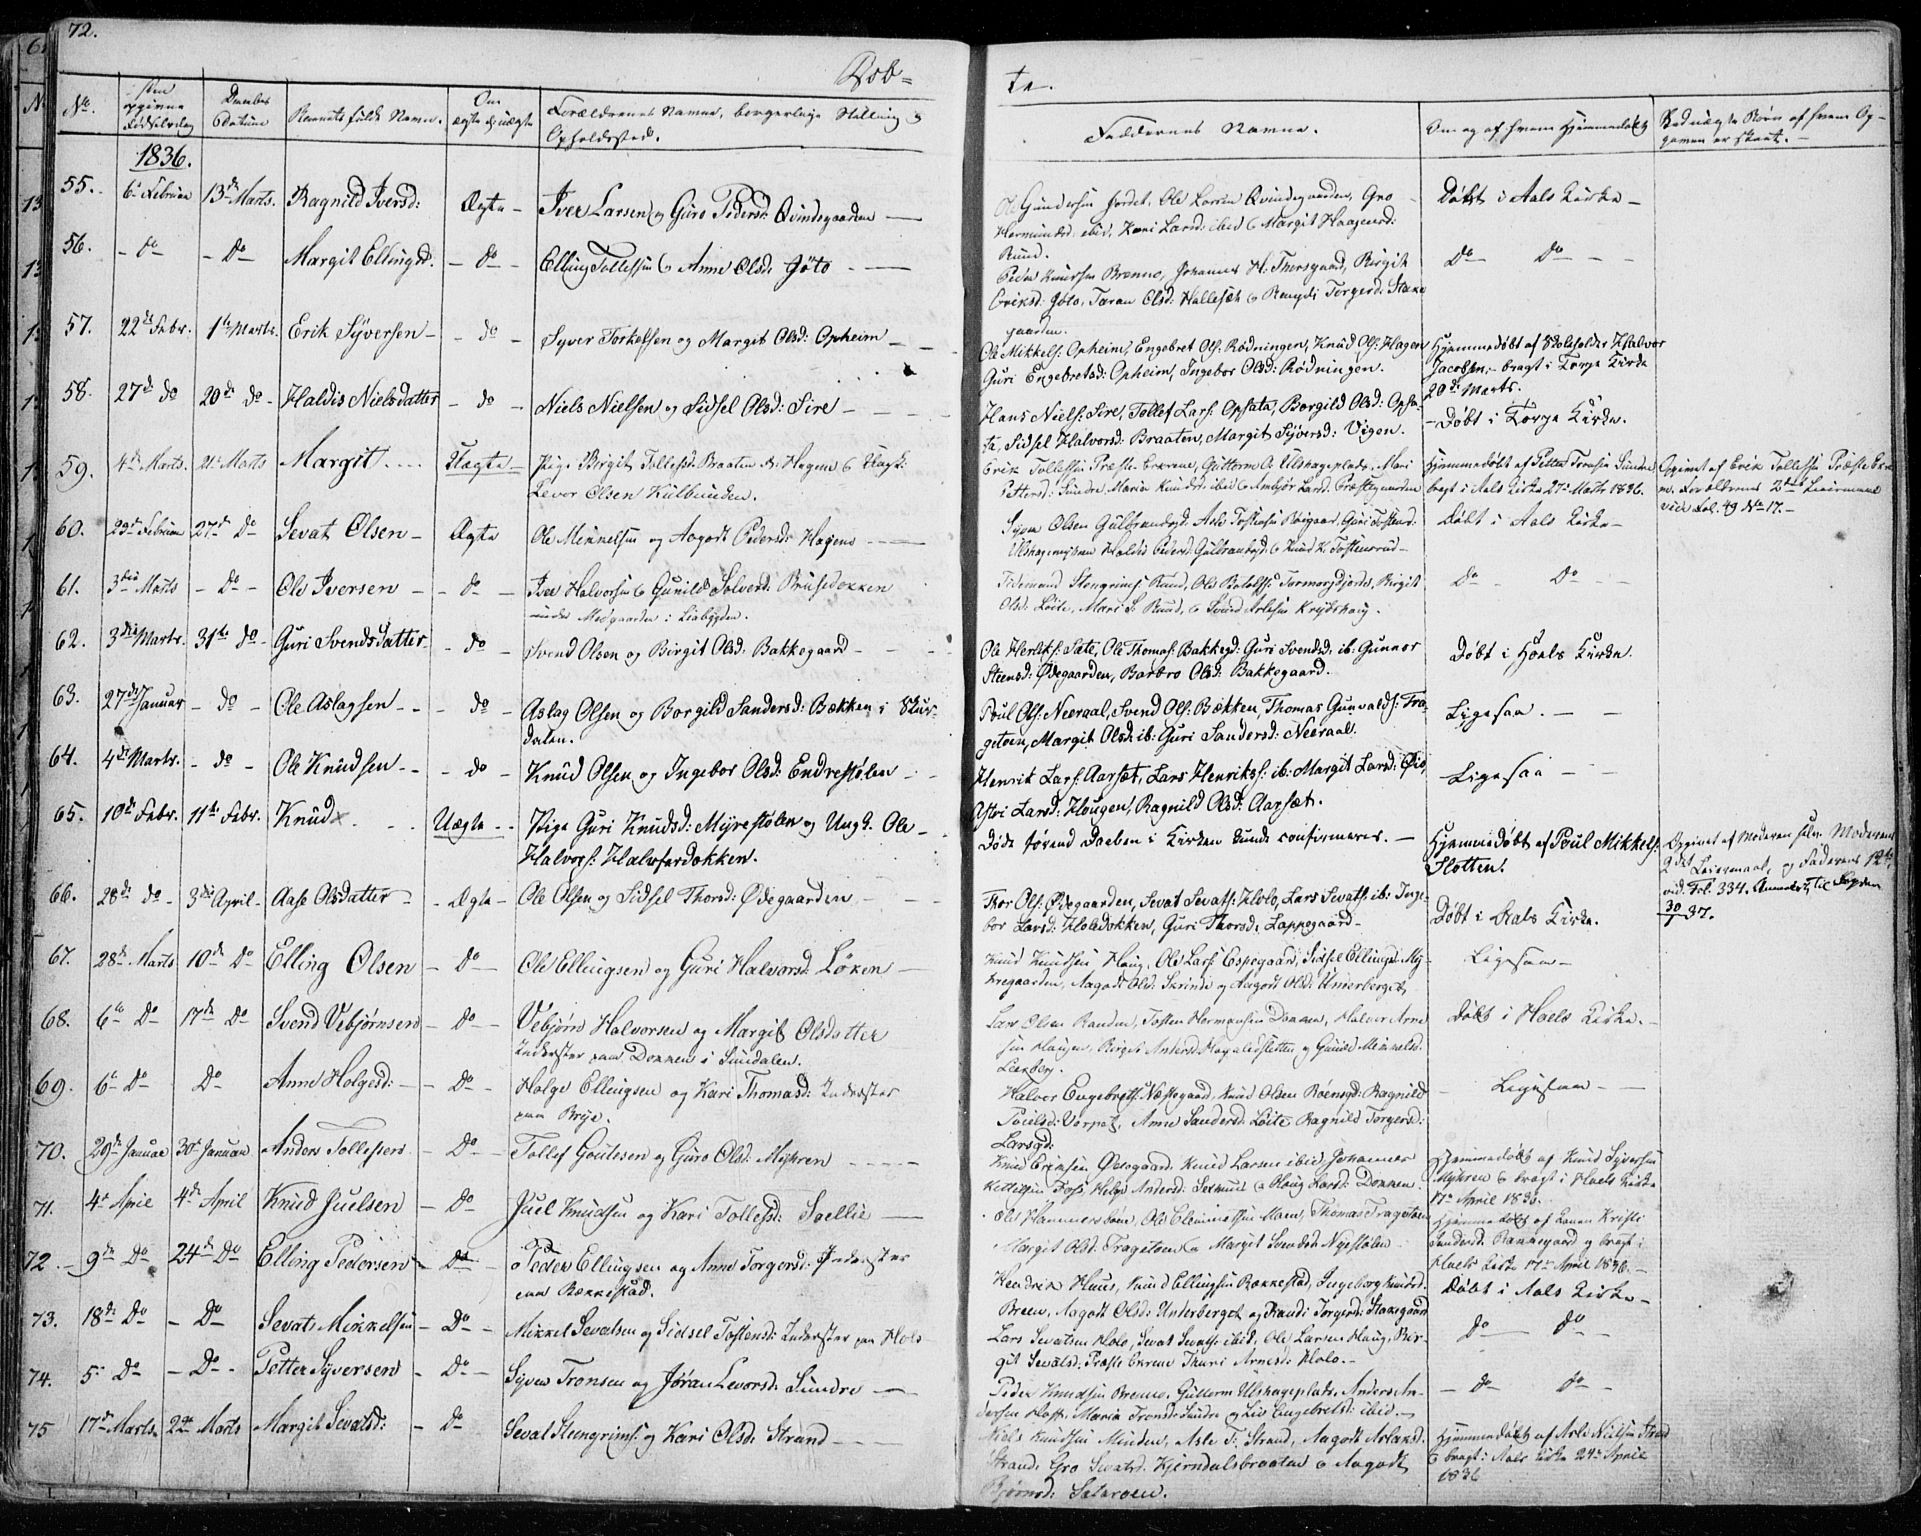 72.
Døb=
te.
No.
den opgivne Fødselsdag
Daabens Datum
Barnets fulde Navn.
Om ægte el. uægte
Forældrenes Navne, borgerlige Stilling og
Opholdssted.
Faddernes Navne.
Om og af hvem Hjemmedøbt
Ved uægte Børn af hvem Op-
gaven er skeet. —
1836.
55. 6te Februar 13de Marts. Ragnild Iversd: Ægte — Iver Larsen og Guro Pedersd: Qvindegaarden —
Ole Gundersen Jordet, Ole Larsen Qvindegaarden, Gro
Hermundsd: ibid, Kari Larsd: ibid & Margit Haagensd:
Ruud.
Døbt i Aals Kirke —
56. — do — do — Margit Ellingsd. — do — Elling Tollefsen & Anne Olsd: Gøto — —
Peder Knudsen Brenno, Johannes H. Thorsgaard, Birgit
Eriksd: Gøto, Taran Olsd: Hallesæt & Rangdi Torgersd: Stave
gaarden.
Do — Do — —
57. 22de Febr. 1te Marts. Erik Syversen — — do — Syver Torkelsen og Margit Olsd: Opheim —
Ole Mikkels: Opheim, Engebret Ols: Rødningen, Knud Ols: Hagen
Guri Engebretsd: Opheim, Ingebor Olsd: Rødningen.
Hjemmedøbt af Skoleholder Halvor
Jacobsen, — bragt i Torpe Kirke
20de Marts.
58. 27de do 20de do — Haldis Nielsdatter — do — Niels Nielsen og Sidsel Olsd: Sire —
Hans Niels: Sire, Tollef Lars: Opsata, Borgild Olsd: Opsa-
ta, Sidsel Halvorsd: Braaten, Margit Syversd: Vigen.
— Døbt i Torpe Kirke.
59. 4de Marts. 21de Marts Margit.... Uægte — Pige Birgit Tollefsd: Braaten u. Hagene & Ungk:
Levor Olsen Kulbunden.
Erik Tollefsen Præste Ekrene, Guttorm O. Ulshagepladz, Mari
Pettersd: Sundre, Maria Knudsd: ibid & Ambjør Larsd: Præstegaarden
Hjemmedøbt af Petter Tronsen Sundre
bragt i Aals Kirke 27de Marts 1836.
Opgivet af Erik Tollefsen Præste Ek-
rene. Forældrenes 2det Leiermaal
vid. Fol. 49 No. 17. —
60. 23de Februar 27de Do Sevat Olsen — Ægte Ole Mikkelsen og Aagodt Pedersd: Hagene — —
Syver Olsen Gulbrandsgd. Asle Tostensen Noregaard, Guri Tostensd:
Ulshagemyhren Haldis Pedersd: Gulbrandsgd. & Knud K. Tostensrud —
Døbt i Aals Kirke —
61. 3die Marts — Do — Ole Iversen — — do — Iver Halvorsen & Gunild Solversd: Brusedokken
under Medgaarden i Liabygden.
Tidemand Stengrimsen Ruud, Ole Botolfs: Tormodsgjordet, Birgit
Olsd: Løite, Mari S: Ruud, & Svend Aslesen Krydshaug.
Do — Do — —
62. 3die Marts. 31te do — Guri Svendsdatter — — do — Svend Olsen og Birgit Olsd. Bakkegaard — —
Ole Herleks: Sate, Ole Thomas: Bakkegd: Guri Svendsd: ib: Gunner
Steensd: Ødegaarden, Barbro Olsd: Bakkegaard.
Døbt i Hoels Kirke.
63. 27de Januar — do — Ole Aslagsen — — do — Aslag Olsen og Borgild Sandersd: Bækken i Skur-
dalen.
Poul Ols: Neeraal, Svend Ols: Bækken, Thomas Gunvalds: Tra-
getoen, Margit Olsd: ib: Guri Sandersd: Neeraal.
Ligesaa. — —
64. 4de Marts. — do — Ole Knudsen — — do — Knud Olsen og Ingebor Olsd: Endrestølen — —
Henrik Lars: Aarsæt, Lars Henriks: ib: Margit Larsd: Øie,
Astri Larsd: Hougen, Ragnild Olsd: Aarsæt.
Ligesaa — —
65. 10de Febr. 11te Febr. Knud × . Uægte — Pige Guri Knudsd: Myrestølen og Ungk. Ole —
Halvors: Halvfardokken.
Døde førend Daaben i Kirken kunde confirmeres. —
Hjemmedøbt af Poul Mikkels:
Slotten.
Opgivet af Moderen selv. Moderens
2det Leiermaal, og Faderens 1ste,
vid. Fol. 334. Anmeldt til Fogden
30/1 37.
66. 28de do — 3die April — Aase Olsdatter — — Ægte — Ole Olsen og Sidsel Thorsd: Ødegaarden —
Thor Ols: Ødegaarden, Sevat Sevats: Holo, Lars Sevats: ib: Inge-
bor Larsd: Holodokken, Guri Thorsd: Loppegaard —
Døbt i Aals Kirke.
67. 28de Marts 10de Do Elling Olsen — Do — Ole Ellingsen og Guri Halvorsd: Løken —
Knud Knudsen Haug, Ole Lars: Espegaard, Sidsel Ellingsd: My-
hregaarden, Aagodt Olsd: Skrinde og Aagodt Olsd: Underberget,
Ligesaa —
68. 6te Do 17de Do Svend Vebjørnsen — Do — Vebjørn Halvorsen og Margit Olsdatter
Inderster paa Dokken i Sundalen.
Lars Olsen Randen, Tosten Hermansen Dokken, Halvor Arne
sen Haugen, Birgit Andersd: Hogaledsletten og Gunild Mikkelsd:
Lerberg.
Døbt i Hoels Kirke. —
69. 6te Do Do Anne Holgesd: — — Do — Holge Ellingsen og Kari Thomasd: Inderster
paa Brye.
Halvor Engebrets: Næstegaard, Knud Olsen Roensgd: Ragnild
Poulsd: Vorpet, Anne Sandersd: Løite Ragnild Torgersd:
Larsgd:
— Ligesaa — —
70. 29de Januar 30te Januar Anders Tollefsen — Do — Tollef Goutesen og Guro Olsd: Myhren — — —
Knud Eriksen Ødegaard, Knud Larsen ibid Johannes
Kettilsen Foss Helge Andersd: & Haug Larsd: Dokken
Hjemmedøbt af Knud Syversen
Myhren & bragt i Hoels Kirke
17de April 1836.
71. 4de April 4de April Knud Juelsen — Do — Juel Knudsen og Kari Tollefsd: Sællie —
Ole Hammersbøen, Ole Clemmetsen Moen, Thomas Tragetoen
Margit Olsd: Tragetoen & Margit Svendsd: Nyestølen —
Hjemmedøbt af Konen Kristi
Sandersd: Bakkegaard og bragt i
Hoels Kirke 17de April 1836. —
72. — 9de Do 24de Do Elling Pedersen — Do — Peder Ellingsen og Anne Torgersd: Inderster
paa Rækkestad.
Hendrik Huus, Knud Ellingsen Rækkestad, Ingeborg Knudsd:
Breen, Aagodt Olsd: Underberget og Randi Torgersd: Stavegaard
Døbt i Aals Kirke —
73. 18de Do — Do — Sevat Mikkelsen — Do — Mikkel Sevatsen og Sidsel Tostensd: Inderster paa Holo
Lars Sevatsen Holo, Sevat Sevats: ibid, Ole Larsen Haug, Bir-
git Sevatsd: Præste Ekrene Thuri Arnesd: Holo. —
Do — Do —
74. 5te Do — Do — Petter Syversen — Do — Syver Tronsen og Jøran Levorsd: Sundre —
Peder Knudsen Brenno, Guttorm Ulshagepladz, Anders An-
dersen Hoff, Maria Tronsd: Sundre og Liv Engebretsd: ibid. —
— Do — Do —
75 17de Marts 22de Marts Margit Sevatsd: — Do — Sevat Stengrims: og Kari Olsd: Strand —
Niels Knudsen Minden, Asle T: Strand, Aagodt Aslaksd:
Strand, Gro Sevatsd: Kjerndalsbraaten & Aagodt
Bjørnsd: Sataroen.
Hjemmedøbt af Asle Nielsen Strand
& bragt i Aals Kirke 24de April
1836